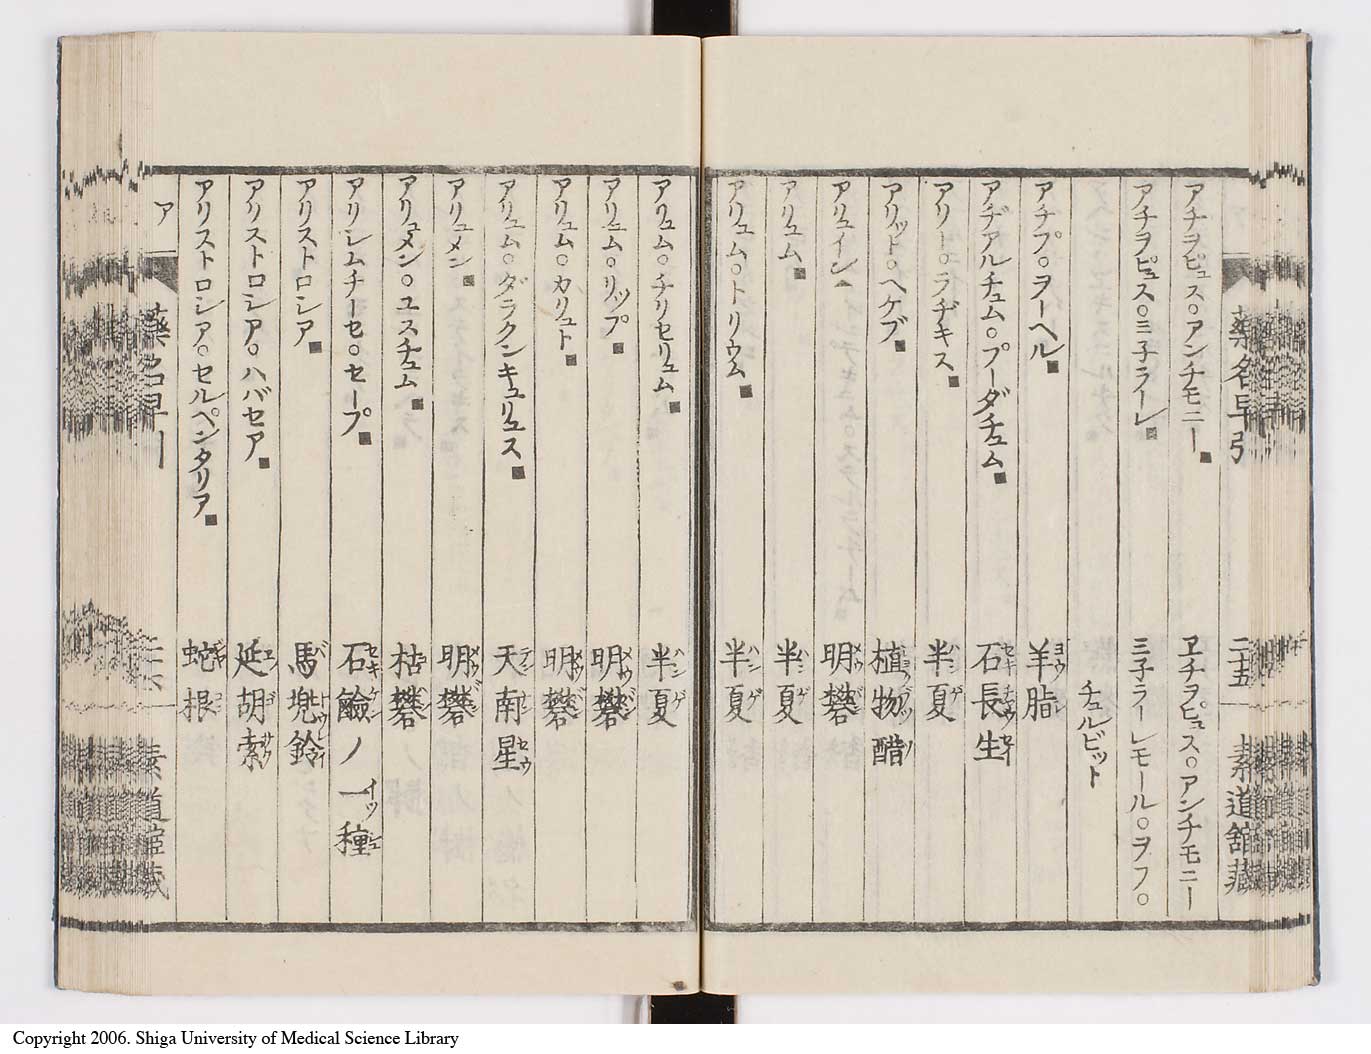 薬名早引 二十五 素道舘蔵
アチヲピュス○アンチモニー■ ヱチヲピュス○アンチモニー
アチヲピュス○ミ子ラーレ■ ミ子ラーレモール○ヲフ○
チュルビット
アチプ○ヲーヘル■ 羊脂
アヂアルチュム○プーダチュム■ 石長生
アリー○ラヂキス■ 半夏
アリット○ヘケブ■ 植物醋
アリュイン▲ 明礬
アリュム■ 半夏
アリュム○トリウム■ 半夏
アリュム○チリセリュム■ 半夏
アリュム○リップ■ 明礬
アリュム○カリュト■ 明礬
アリュム○ダラクンキュリュス■ 天南星
アリュメン■ 明礬
アリュメン○ユスチュム■ 枯礬
アリレムチーセ○セープ■ 石鹸ノ一種
アリストロシア■ 馬兜鈴
アリストロシア○ハバセア■ 延胡索
アリストロシア○セルペンタリア■ 蛇根
ア 薬名早 素道舘蔵
Copyright 2006. Shiga University of Medical Science Library